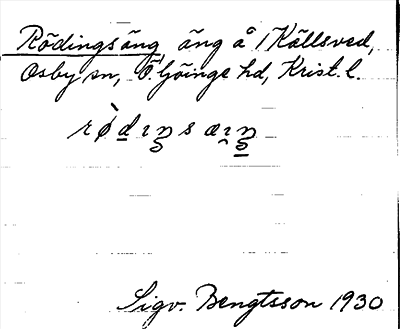 Rödingsäng äng å /Källsved,
Osby sn, Ö. Göinge hd, Krist. l.
rø̀dıŋsæıŋ
Sigv. Bengtsson 1930